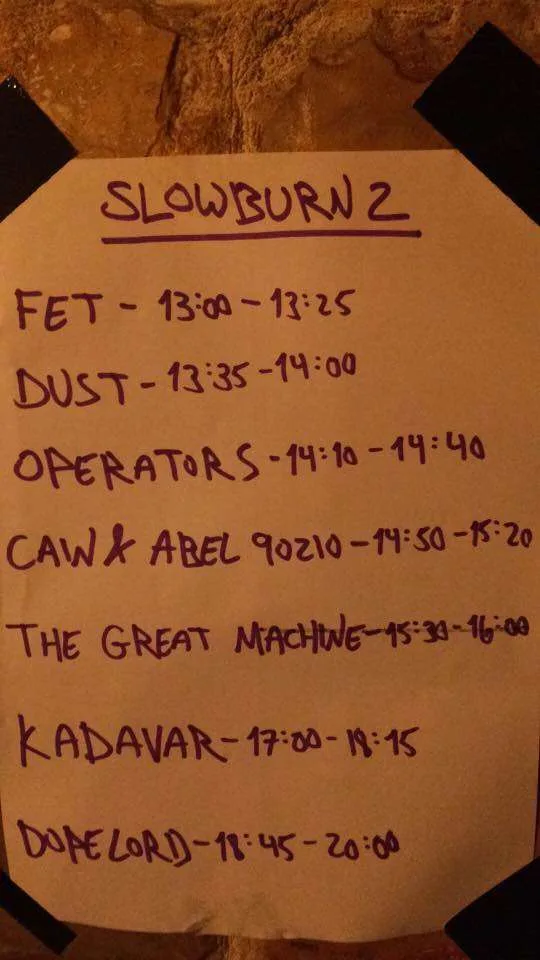 SLOWBURN 2
FET - 13:00 - 13:25
DUST - 13:35 - 14:00
OPERATORS - 14:10 - 14:40
CAW & ABEL 90210 - 14:50 - 15:20
THE GREAT MACHINE - 15:30 - 16:00
KADAVAR - 17:00 - 18:15
DOPELORD - 18:45 - 20:00